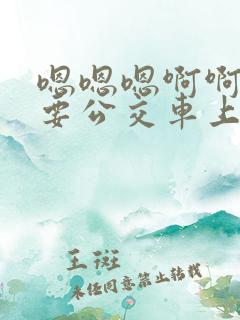 嗯嗯嗯啊啊
要公交車上
王斑
未经同意禁止转载